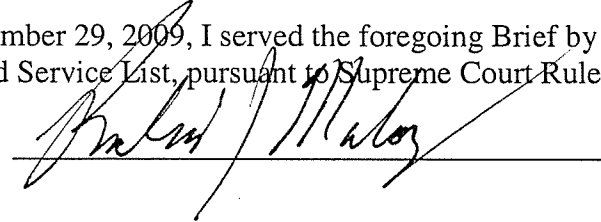 mber 29, 2009, I served the foregoing Brief by
d Service List, pursuant to Supreme Court Rule